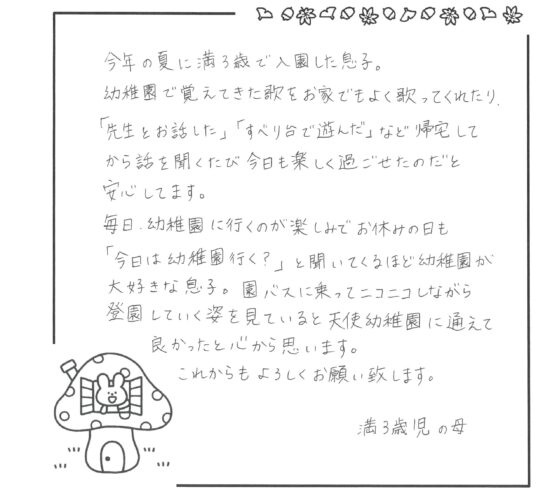 今年の夏に満3歳で入園した息子。
幼稚園で覚えてきた歌をお家でもよく歌ってくれたり、
「先生とお話した」「すべり台で遊んだ」など帰宅して
から話を聞くたび今日も楽しく過ごせたのだと
安心してます。
毎日、幼稚園に行くのが楽しみでお休みの日も
「今日は幼稚園行く？」と聞いてくるほど幼稚園が
大好きな息子。園バスに乗ってニコニコしながら
登園していく姿を見ていると天使幼稚園に通えて
良かったと心から思います。
これからもよろしくお願い致します。
満3歳児の母